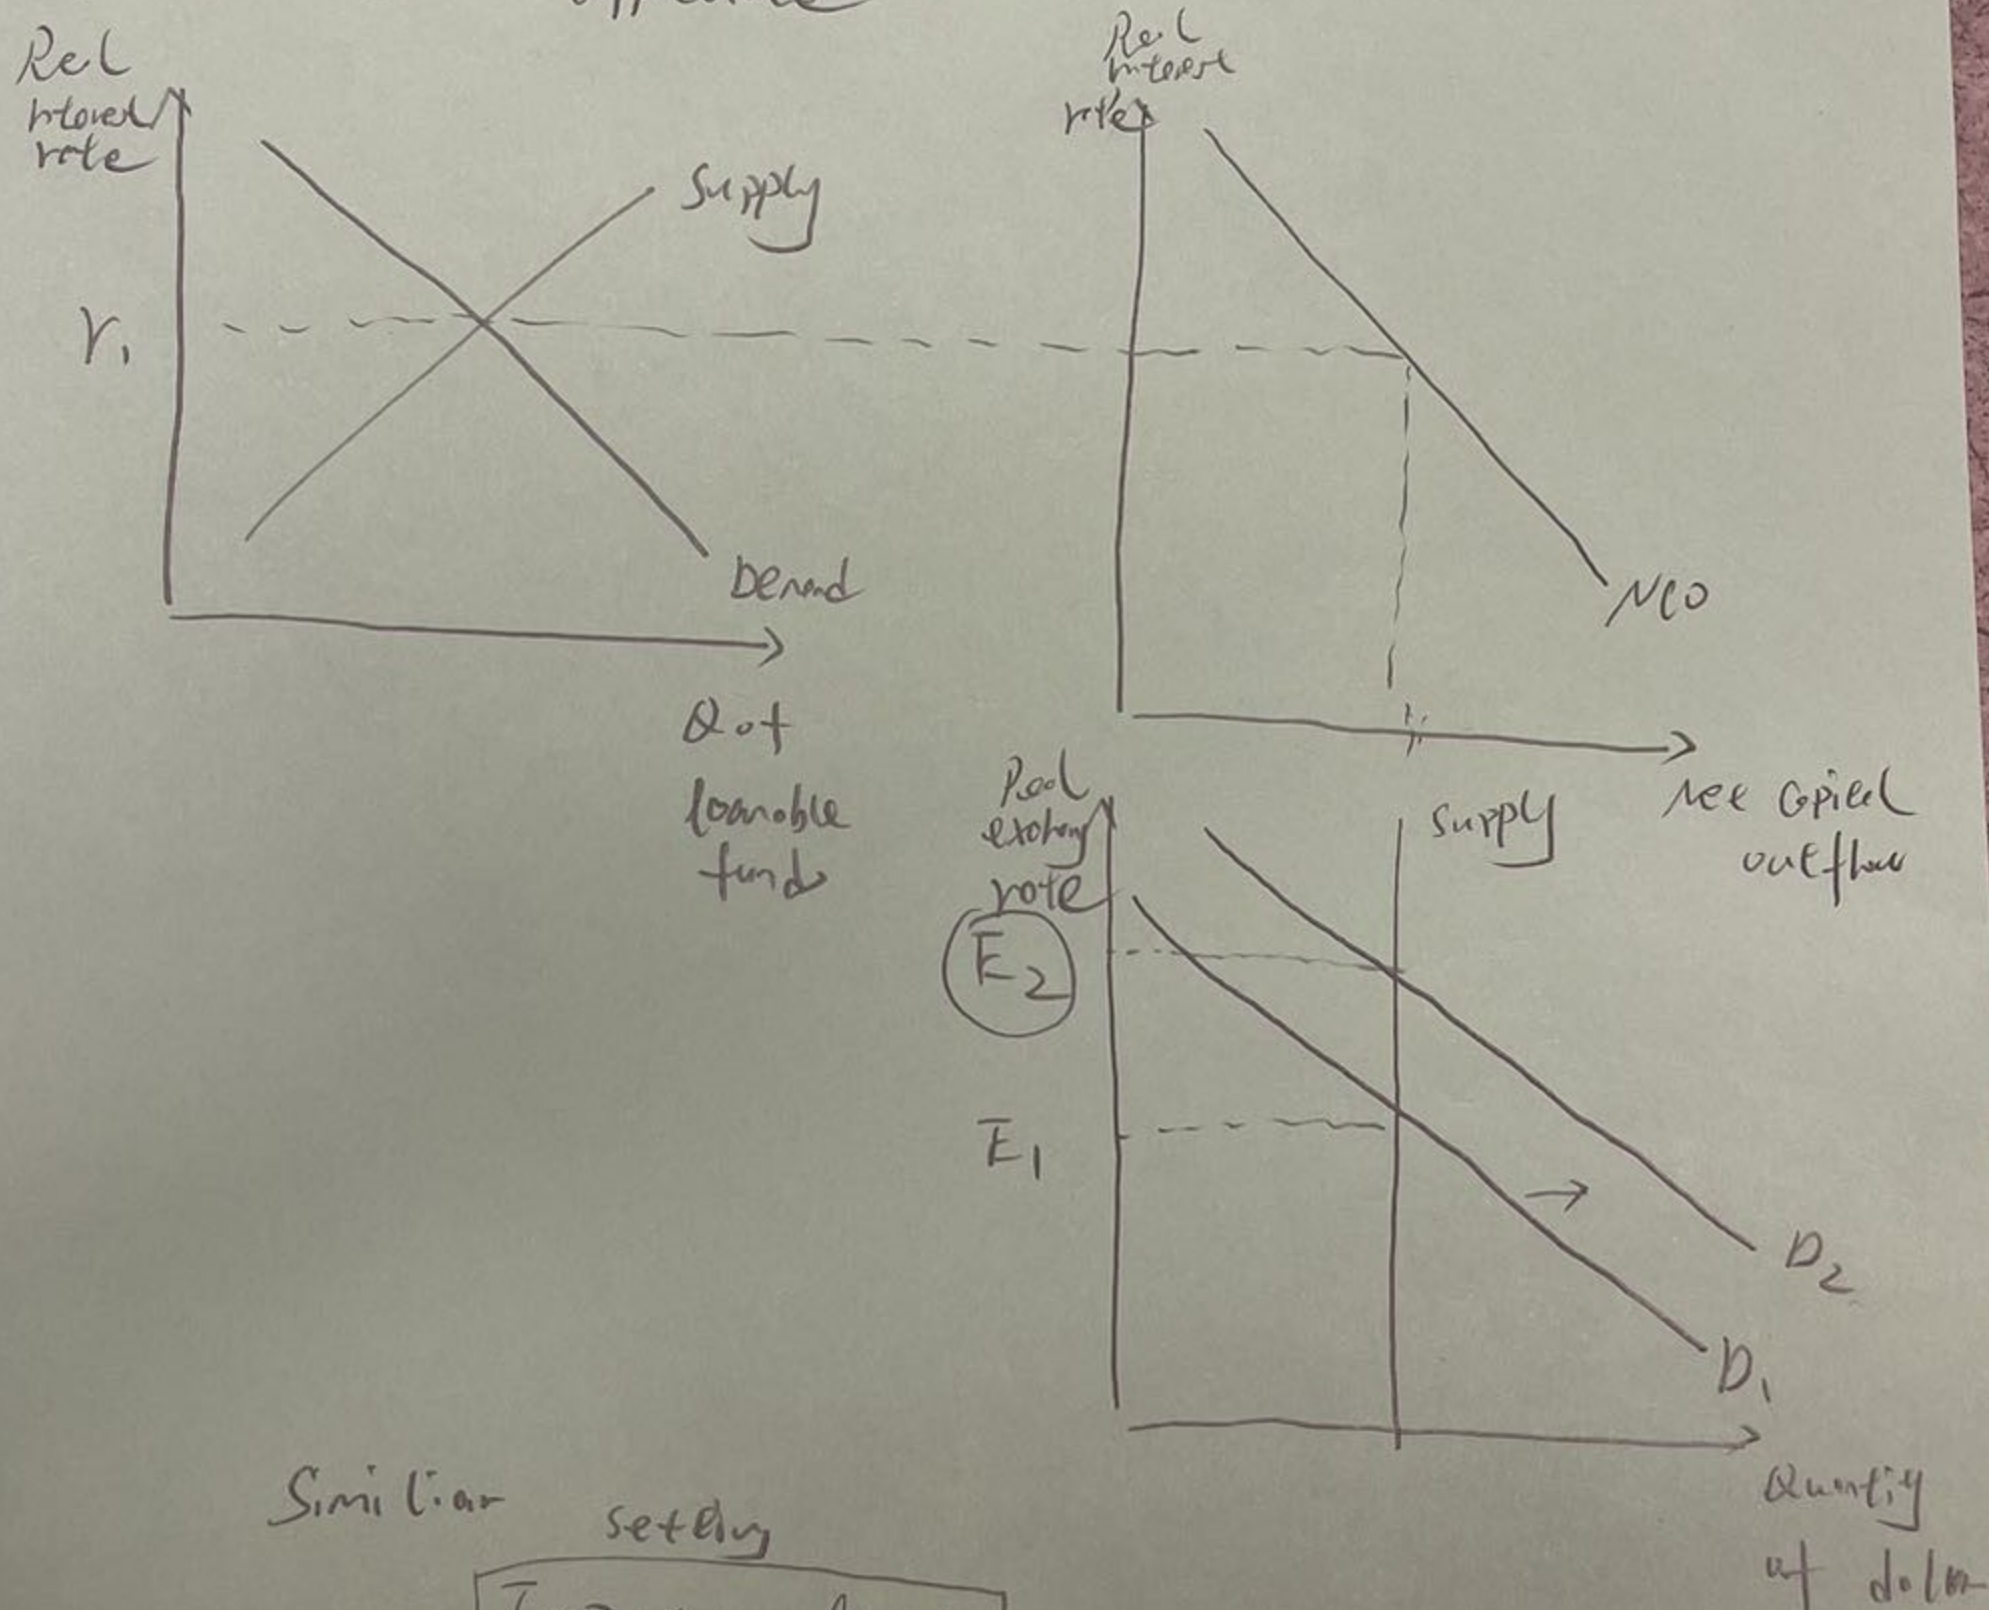 Real
interest
rate
Supply
r₁
Demand
Q of
loanable
funds
Real
interest
rate
NCO
Net capital
outflow
Real
exchang
rate
Supply
E₂
E₁
D₂
D₁
Quantity
of dollar
Similiar
setting